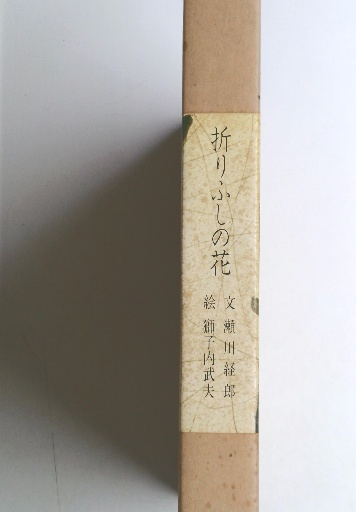 折りふしの花
文 瀬川経郎
絵 獅子内武夫